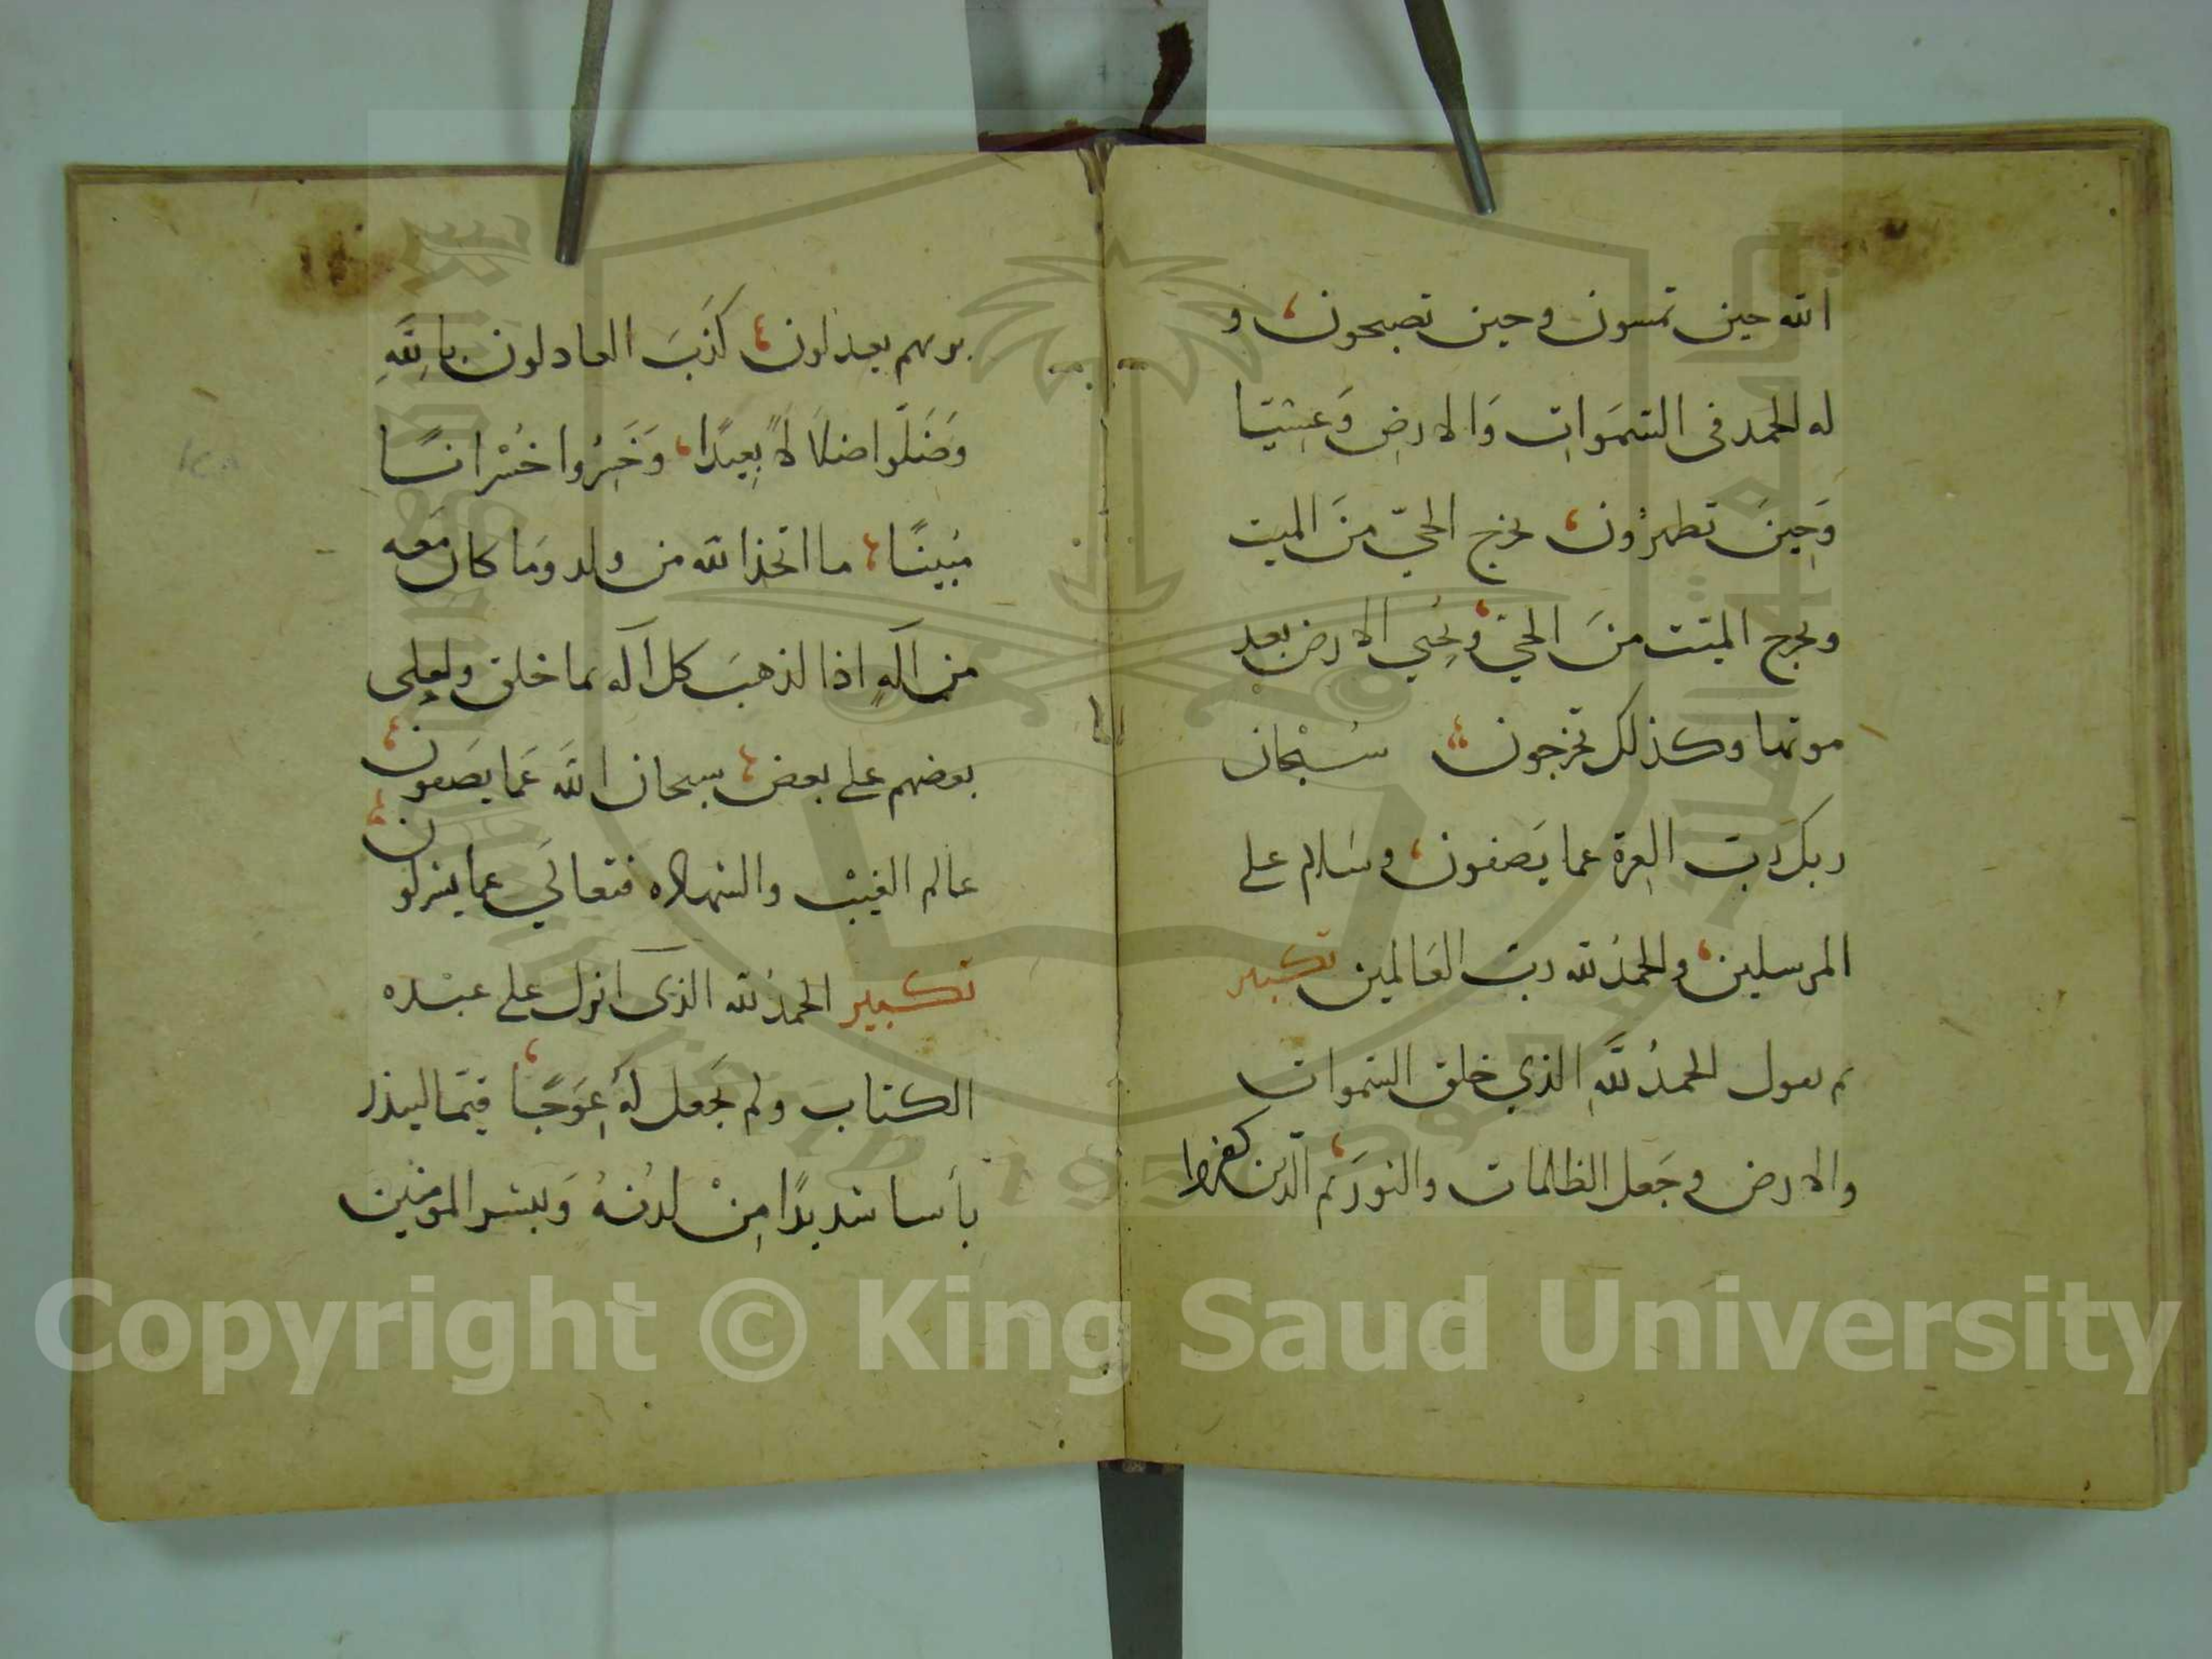 الله حين تمسون وحين تصبحون و
له الحمد فى السَّمَوَاتِ وَالارضِ وَعَشِيّا
وَحِينَ تظهرُون يخرج الحيّ منَ الميت
ويخرج الميّت منَ الحيّ ويُحيي الارض بعد
موتها وكذلك تخرجون سُبْحَان
ربك رَبّ العِزة عما يَصفون وسَلام على
المرسلين والحمدُ لله ربّ العَالمين تكبير
ثم يقول الحمدُ للَّهِ الذي خلق السَّموات
والارض وجَعل الظلمات والنورَ ثم الّذين كفروا
بربهم يعدلون كَذَبَ العادلون بِاللَّهِ
وَضَلّوا ضلَالًا بَعِيدًا وَخَسِرُوا خُسْرانًا
مُبِينًا ما اتخذ الله من ولد وَما كان مَعه
من الَهٍ اذا لذهبَ كل آله بما خلق ولعلى
بعضهم على بعض سبحان اللَّه عَما يصَفون
عالم الغيْب والشهاده فتعالَي عما يشركون
تكبير الحمدُ لله الذى انزل على عبْده
الكتاب ولم يَجعل لهُ عِوَجًا قيّما لينذر
بأسا شديدًا مِنْ لدُنهُ وَيبشر المومنين
Copyright © King Saud University
1957